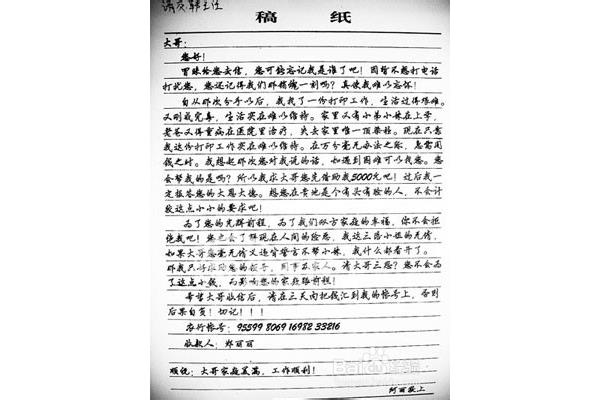 请交韩主任
稿 纸
大哥:
您好!
冒昧给您去信,您可能忘记我是谁了吧!因暂不想打电话
打扰您,您还记得我们那销魂一刻吗?真使我难以忘怀!
自从那次分手以后,我找了一份打印工作,生活过得艰难。
又刚戒完毒,生活实在难以维持。家里又有小弟小妹在上学,
老爸又得重病在医院里治疗,失去家里唯一顶梁柱。现在只靠
我这份打印工作实在难以维持。在万分毫无办法之际,急需用
钱之时。我想起那次您对我说的话,如遇到困难可以找您。您
会帮我的是吗?所以我求大哥您先借助我5000元吧!过后我一
定报答您的大恩大德。想您在贵地是个有头有脸的人,不会计
较这点小小的要求吧!
为了您的光辉前程,为了我们双方家庭的幸福,你不会拒
绝我吧!您也会了解现在人间的险恶,我这三陪小姐的无情,
如果大哥您毫无情义违背誓言不帮小妹,我什么都看开了。
那我只好求助您的领导,同事和家人。请大哥三思?您不会为
了这点小钱,而影响您的家庭跟前程!
希望大哥收信后,请在三天内把钱汇到我的帐号上,否则
后果自负!切记!!!
农行帐号:95599 8069 16982 33216
收款人:郑丽丽
顺祝:大哥家庭美满,工作顺利!
阿丽敬上
Baidu经验